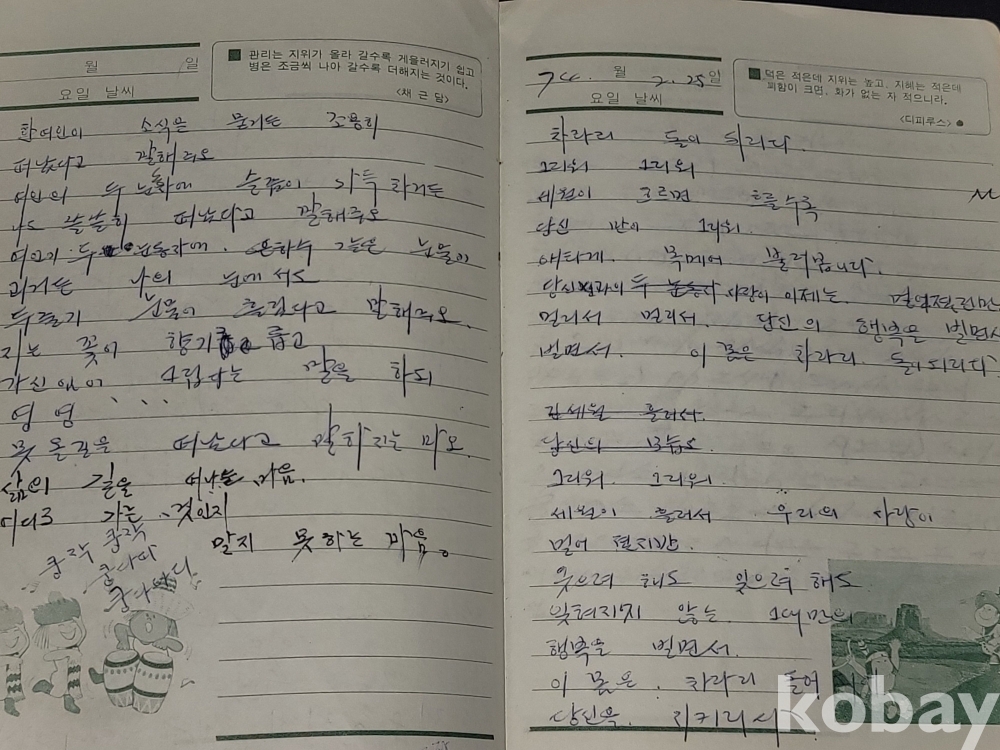 월 일
요일 날씨
■ 관리는 지위가 올라 갈수록 게을러지기 쉽고
병은 조금씩 나아 갈수록 더해지는 것이다.
<채 근 담>
한여인이 소식은 묻거든 조용히
떠났다고 말해주오
여인의 두 슬픔이 가득 하거든
나도 쓸쓸히 떠났다고 말해주오
여인의 두 눈동자에 눈물이
나의 눈에서도
눈물이 흘렀다고 말해주오
지는 꽃이 향기 롭고
가신 님이 그립다는 말을 하되
영영 ....
못올길을 떠났다고 말하지는 마오.
삶의 길을 떠나는 마음.
어디로 가는 것인지
말지 못하는 마음.
쿵작 쿵작
74. 월 2. 25일
요일 날씨
■ 덕은 적은데 지위는 높고, 지혜는 적은데
꾀함이 크면, 화가 없는 자 적으니라.
<디피루스> ●
차라리 돌이 되리다.
그리워 그리워
세월이 흐르면 흐를수록
당신 만이 그리워.
애타게 목메어 불러봅니다.
두 사람이 이제는
멀리서 멀리서. 당신의 행복을 빌면서
빌면서. 이 몸은 차라리 돌이되리다
흘러서.
당신의
그리워 그리워
세월이 흘러서 우리의 사랑이
멀어 졌지만.
웃으려 해도 잊으려 해도
잊혀지지 않는 그대만의
행복을 빌면서.
이 몸은 차라리 돌이
당신을
kobay